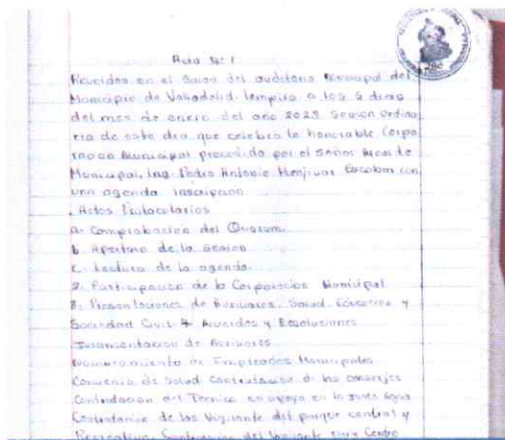 Acta Nº 1
Reunidos en el Salon del auditorio Municipal del
Municipio de Valladolid-lempira a los 6 dias
del mes de enero del año 2025 Sesion Ordina
ria de este dia que celebra la honorable Corpo
racion Municipal procedida por el Señor Alcalde
Municipal, Ing. Pedro Antonio Menjivar Escobar con
una agenda
. Actos Protocolarios
a- Comprobacion del Quorum
b. Apertura de la Sesion
c. Lectura de la agenda
2. Participacion de la Corporacion Municipal
3. Presentaciones de Auxiliares, Salud, Educacion y
Sociedad Civil 4 Acuerdos y Resoluciones
Juramentacion de
Nombramiento de Empleados Municipales
Convenio de Salud Contratacion de los conserjes
Contratacion del Tecnico en apoyo en la Junta Agua
de los Vigilante del parque central y
Contratacion del Vigilante para Centro